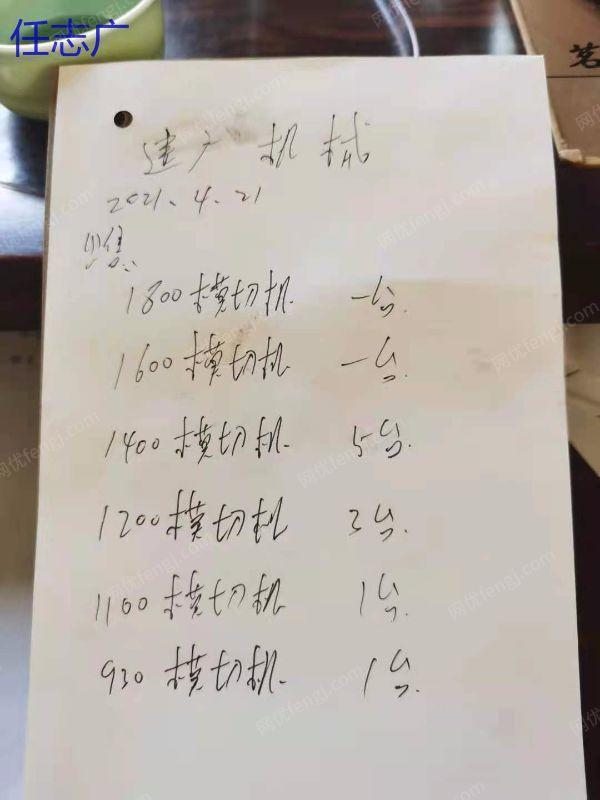 任志广
茗
建广机械
2021.4.21
出售:
1800模切机 一台.
1600模切机 一台.
1400模切机. 5台.
1200模切机 3台.
1100模切机 1台.
930模切机. 1台.
网优fengj.com